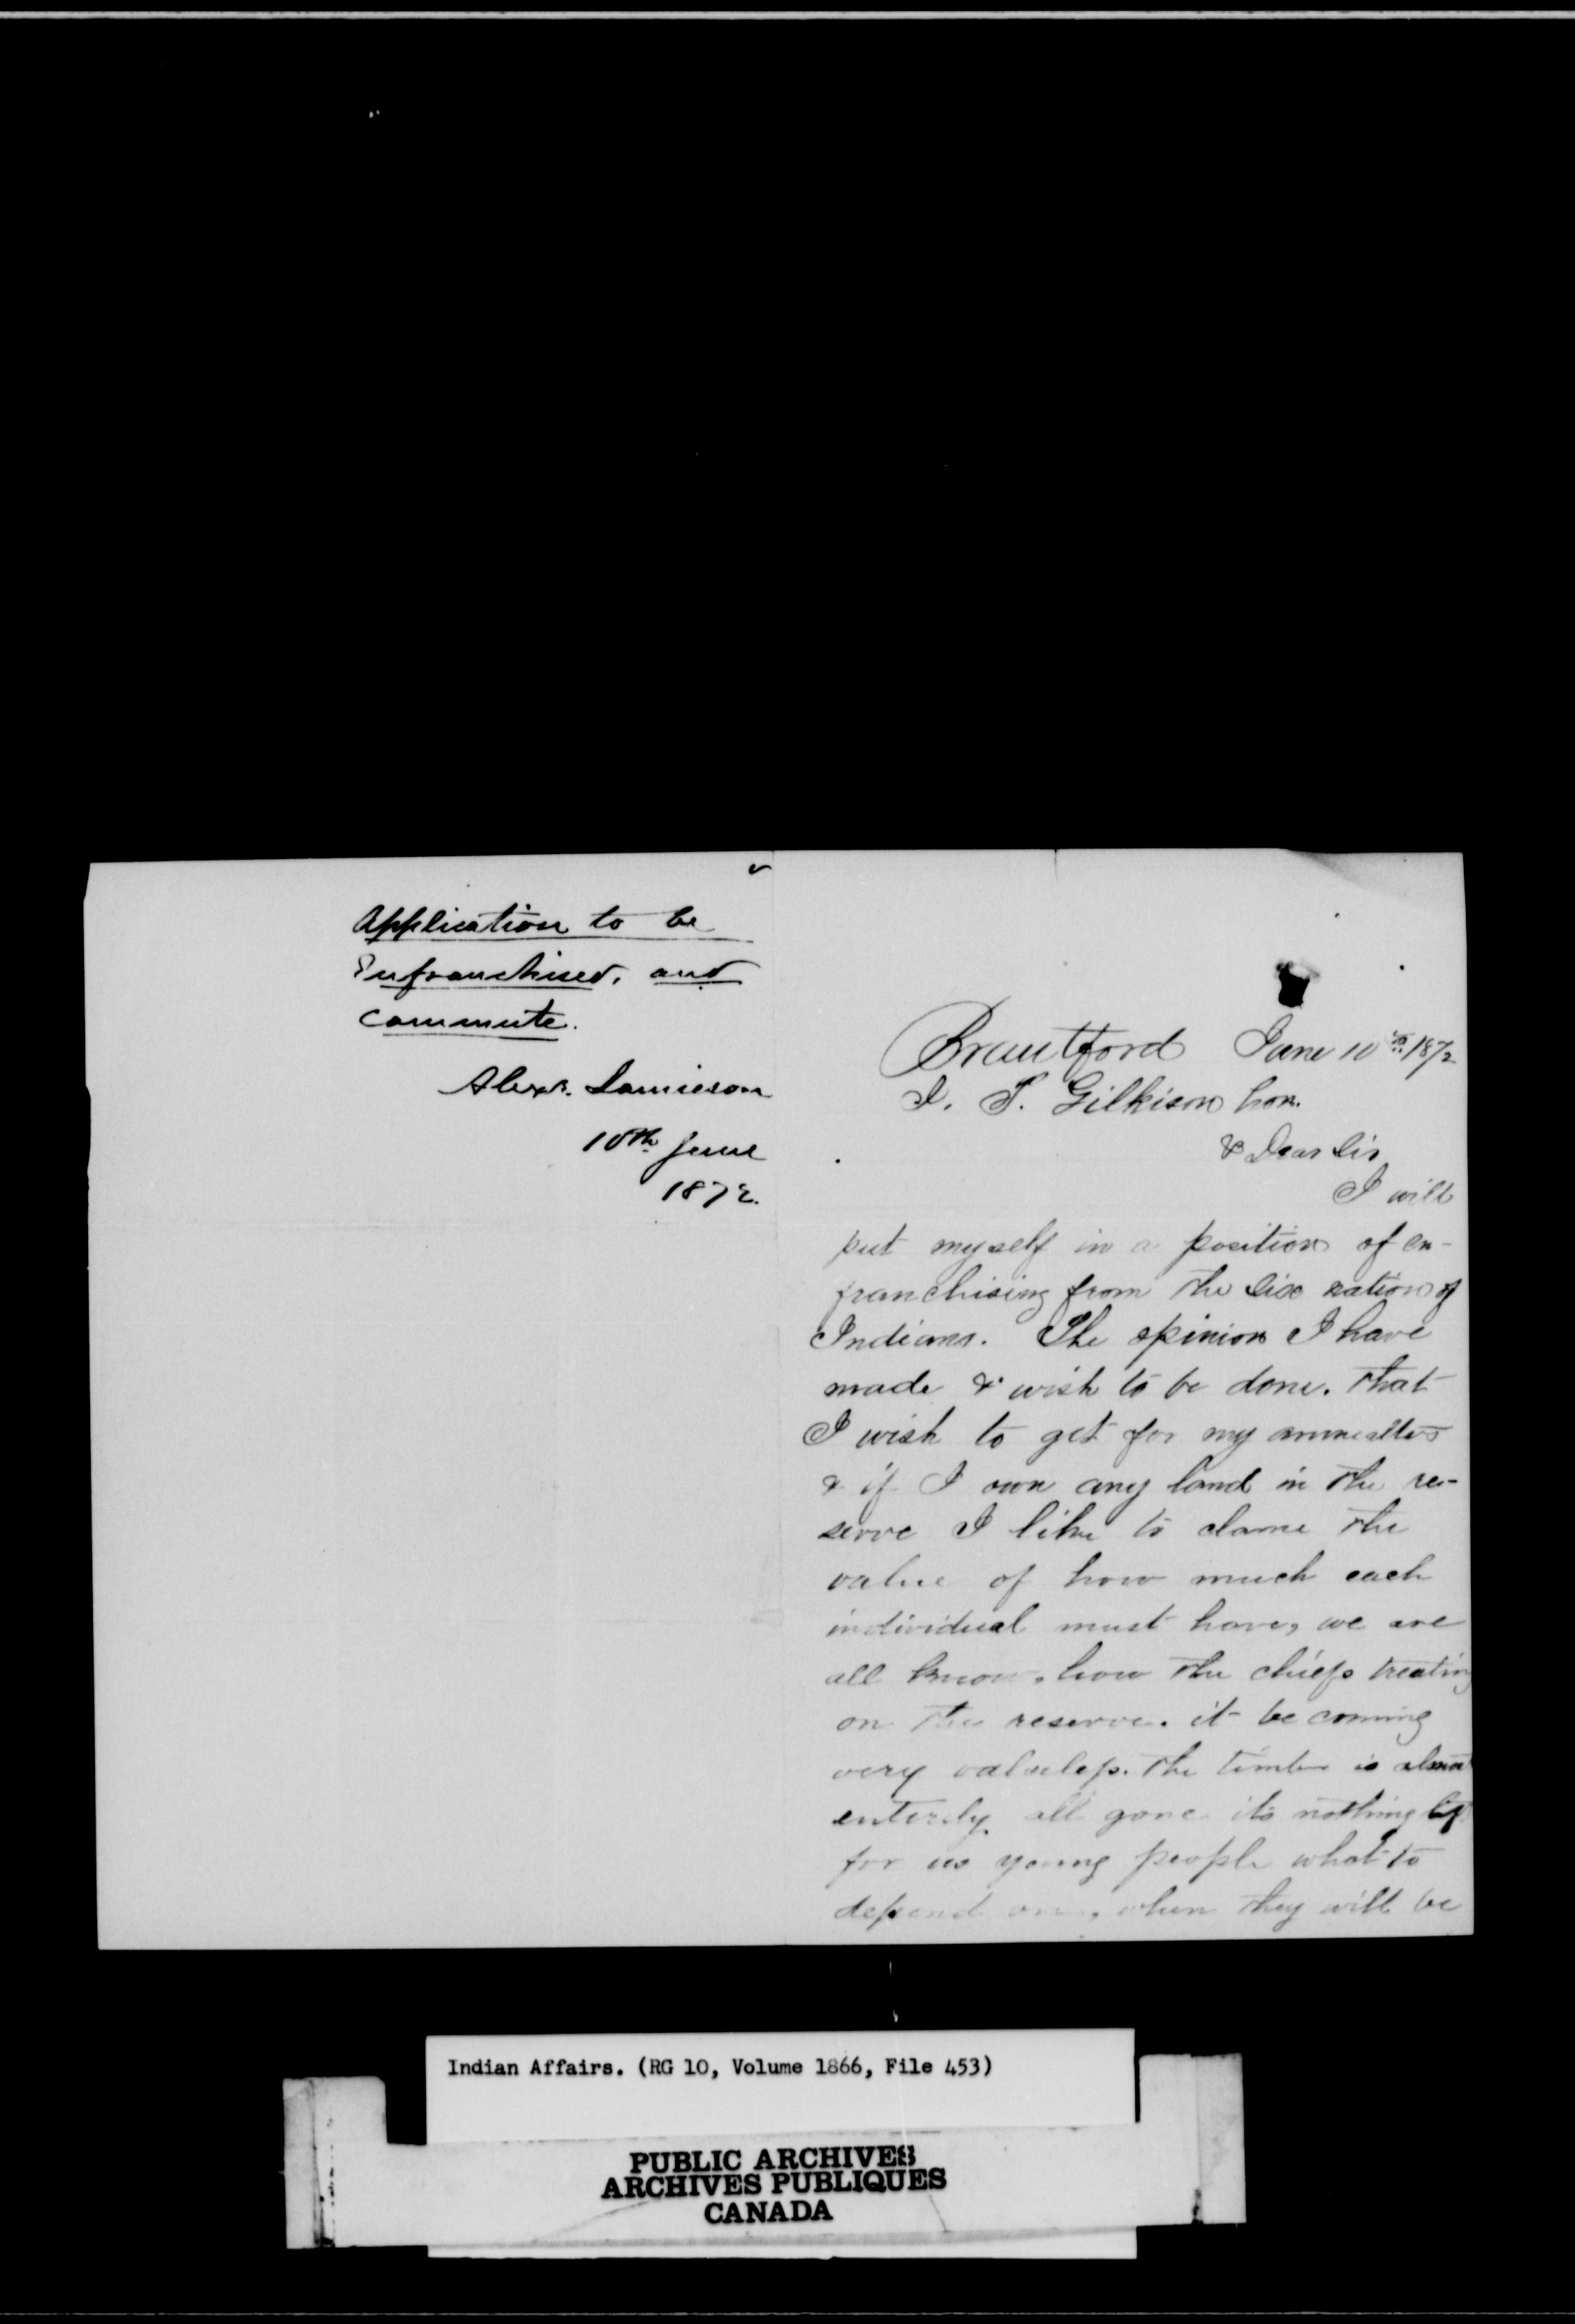 Application to be
Enfranchised, and
Commute.
Alexr. Jamieson
10th June
1872.
Brantford June 10th 1872
J. T. Gilkison hon.
& Dear Sir
I will
put myself in a position of en-
franchising from the Six nations of
Indians. The opinion I have
made & wish to be done. that
I wish to get for my
& if I own any land in the re-
serve I like to clame the
value of how much each
individual must have, we are
all know. how the chiefs treating
on the reserve. it be coming
very the timber is almost
entirely all gone its nothing left
for us young people what to
depend on, when they will be
Indian Affairs. (RG 10, Volume 1866, File 453)
PUBLIC ARCHIVES
ARCHIVES PUBLIQUES
CANADA